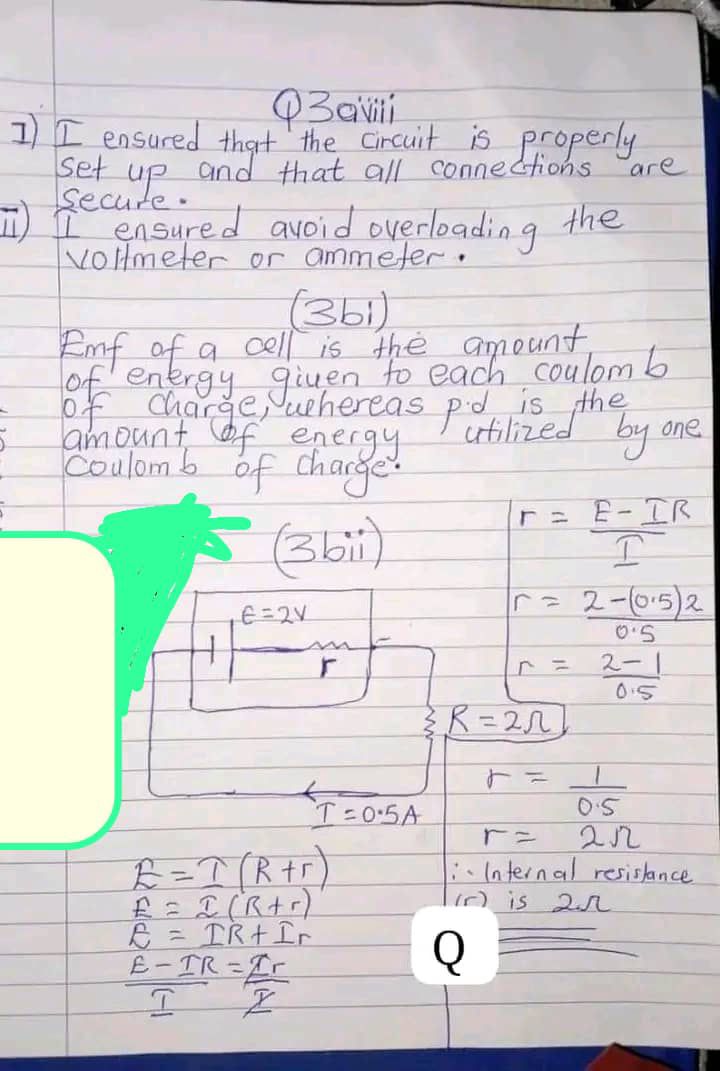 Q3aviii
I) I ensured that the circuit is properly
set up and that all connections are
secure.
II) I ensured avoid overloading the
voltmeter or ammeter.
(3bi)
Emf of a cell is the amount
of energy given to each coulomb
of charge, whereas p.d is the
amount of energy utilized by one
Coulomb of charge.
(3bii)
E = 2V
r
R = 2Ω
I = 0.5A
E = I (R + r)
E = I (R + r)
E = IR + Ir
E - IR = Ir
I I
r = E - IR
I
r = 2 - (0.5)2
0.5
r = 2 - 1
0.5
r = 1
0.5
r = 2Ω
∴ Internal resistance
(r) is 2Ω
Q